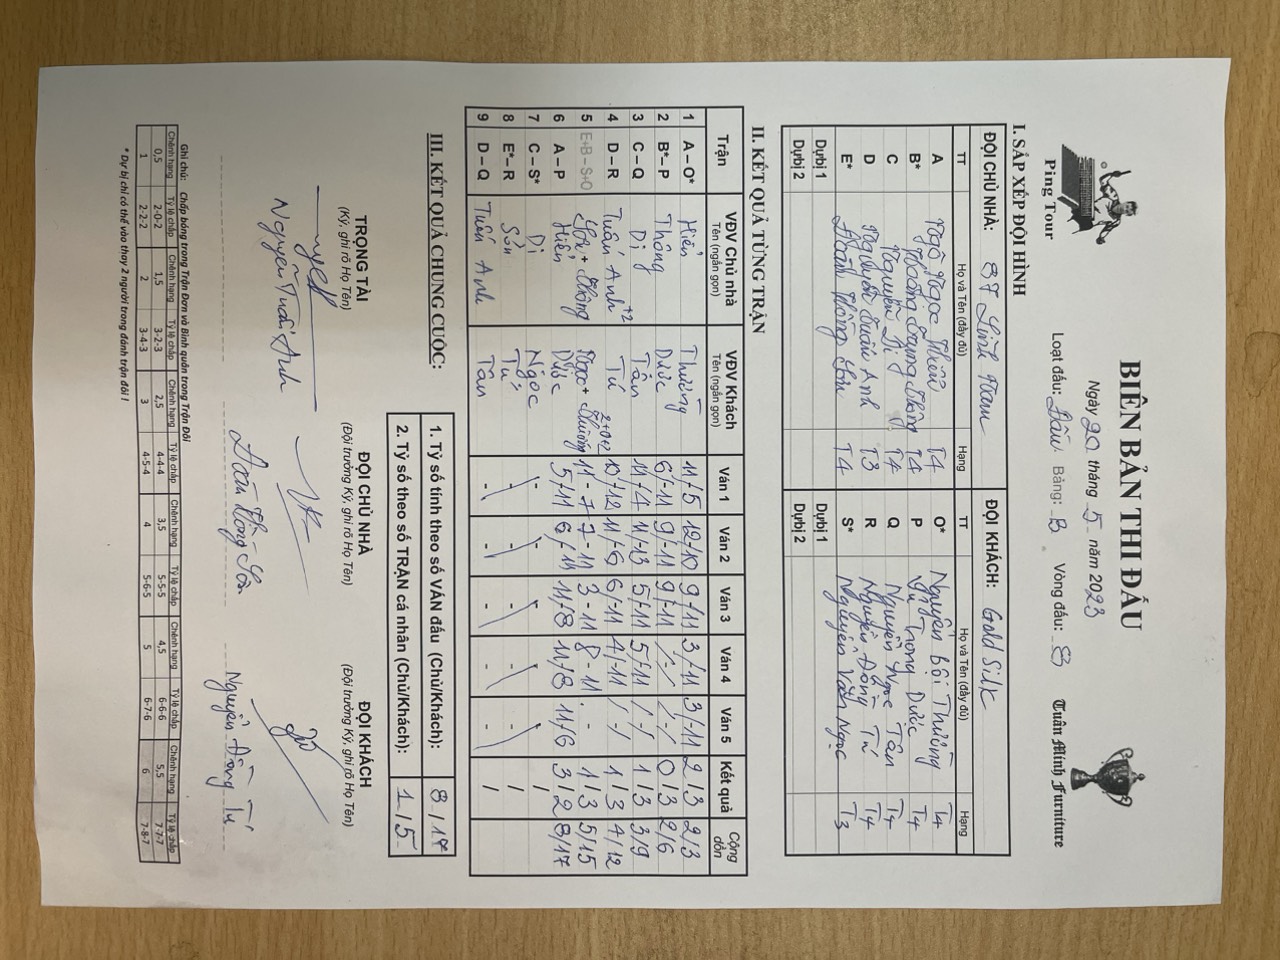 BIÊN BẢN THI ĐẤU
Ping Tour
Ngày 20 tháng 5 năm 2023
Tuấn Minh Furniture
Loạt đấu: Đấu Bảng: B Vòng đấu: 8
I. SẮP XẾP ĐỘI HÌNH
ĐỘI CHỦ NHÀ: 8T Linh Nam ĐỘI KHÁCH: Gold Silk
TT Họ và Tên (đầy đủ) Hạng TT Họ và Tên (đầy đủ) Hạng
A Ngô Ngọc Hiển T4 O* Nguyễn Bội Thưởng T4
B* Hoàng Trung Thông T4 P Vũ Trọng Dược T4
C Nguyễn Dị T4 Q Nguyễn Ngọc Tân T4
D Nguyễn Tuấn Anh T3 R Nguyễn Đông Tú T4
E* Đoàn Hồng Sơn T4 S* Nguyễn Văn Ngọc T3
Dự bị 1 Dự bị 1
Dự bị 2 Dự bị 2
II. KẾT QUẢ TỪNG TRẬN
Trận VĐV Chủ nhà Tên (ngắn gọn) VĐV Khách Tên (ngắn gọn) Ván 1 Ván 2 Ván 3 Ván 4 Ván 5 Kết quả Cộng dồn
1 A – O* Hiển Thưởng 11/5 12-10 9/11 3/11 3-11 2/3 2/3
2 B* – P Thông Dược 6/-11 9-11 9-11 /-/ /-/ 0/3 2/6
3 C – Q Dị Tân 11-4 11-13 5/-11 5/11 /-/ 1/3 3/9
4 D – R Tuấn Anh +2 Tú 10/12 11/-6 6/-11 4/-11 /-/ 1/3 4/12
5 E+B – S+O Sơn + Thông Ngọc + Thưởng 2+0+2 11-7 7-11 3-11 8-11 - 1/3 5/15
6 A – P Hiển Dược 5/11 6/11 11/8 11/8 11/6 3/2 8/17
7 C – S* Dị Ngọc - - - - - /
8 E* – R Sơn Tú - - - - - /
9 D – Q Tuấn Anh Tân - - - - - /
III. KẾT QUẢ CHUNG CUỘC:
1. Tỷ số tính theo số VÁN đấu (Chủ/Khách): 8/17
2. Tỷ số theo số TRẬN cá nhân (Chủ/Khách): 1/5
TRỌNG TÀI ĐỘI CHỦ NHÀ ĐỘI KHÁCH
(Ký, ghi rõ Họ Tên) (Đội trưởng Ký, ghi rõ Họ Tên) (Đội trưởng Ký, ghi rõ Họ Tên)
Nguyễn Tuấn Anh Đoàn Hồng Sơn Nguyễn Đông Tú
Ghi chú: Chấp bóng trong Trận Đơn và Bình quân trong Trận Đôi
Chênh hạng Tỷ lệ chấp Chênh hạng Tỷ lệ chấp Chênh hạng Tỷ lệ chấp Chênh hạng Tỷ lệ chấp Chênh hạng Tỷ lệ chấp Chênh hạng Tỷ lệ chấp
0,5 2-0-2 1,5 3-2-3 2,5 4-4-4 3,5 5-5-5 4,5 6-6-6 5,5 7-7-7
1 2-2-2 2 3-4-3 3 4-5-4 4 5-6-5 5 6-7-6 6 7-8-7
* Dự bị chỉ có thể vào thay 2 người trong đánh trận đôi !